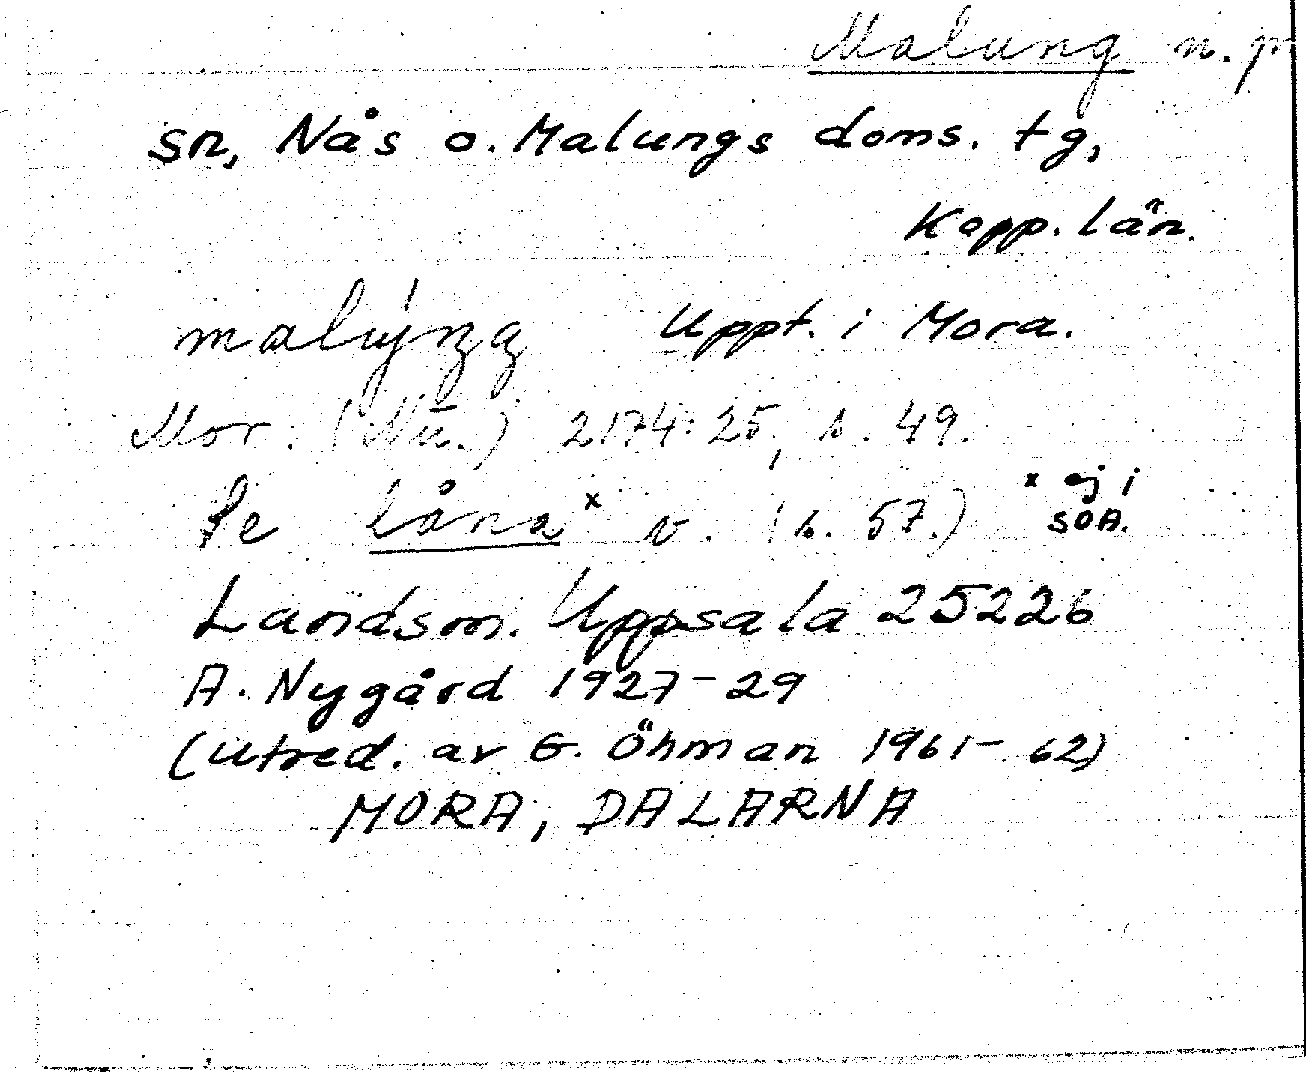 Malung n. pr
sn, Nås o. Malungs doms. tg,
Kopp. län.
Uppt. i Mora.
Mor. (Nu.) 2174:25, s. 49.
Se låna x v. (s. 57.) x ej i SOA.
Landsm. Uppsala 25226
A. Nygård 1927-29
(utred. av G. Öhman 1961-62)
MORA, DALARNA